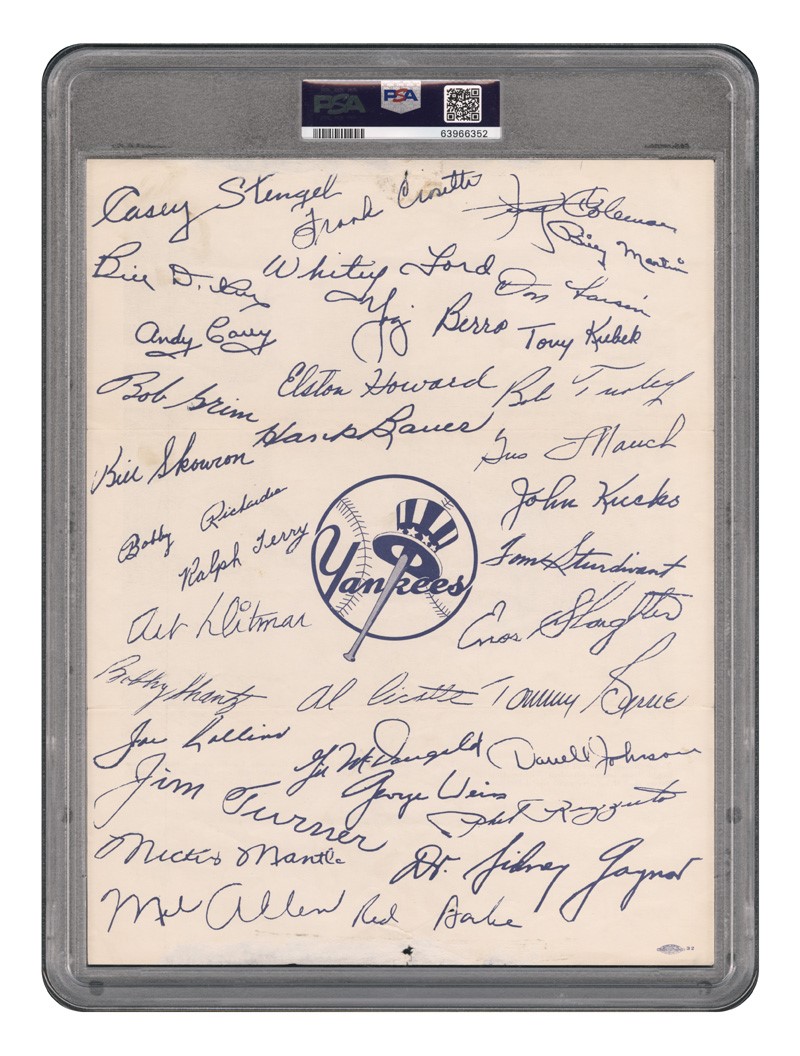 PSA
PSA
63966352
Casey Stengel
Frank Crosetti
Jerry Coleman
Billy Martin
Bill Dickey
Whitey Ford
Don Larsen
Yogi Berra
Andy Carey
Tony Kubek
Elston Howard
Bob Grim
Bob Turley
Hank Bauer
Gus Mauch
Bill Skowron
John Kucks
Bobby Richardson
Ralph Terry
Yankees
Tom Sturdivant
Art Ditmar
Enos Slaughter
Bobby Shantz
Al Cicotte
Tommy Byrne
Joe Collins
Gil McDougald
Darrell Johnson
Jim Turner
George Weiss
Phil Rizzuto
Mickey Mantle
Dr. Sidney Gaynor
Mel Allen
Red Barber